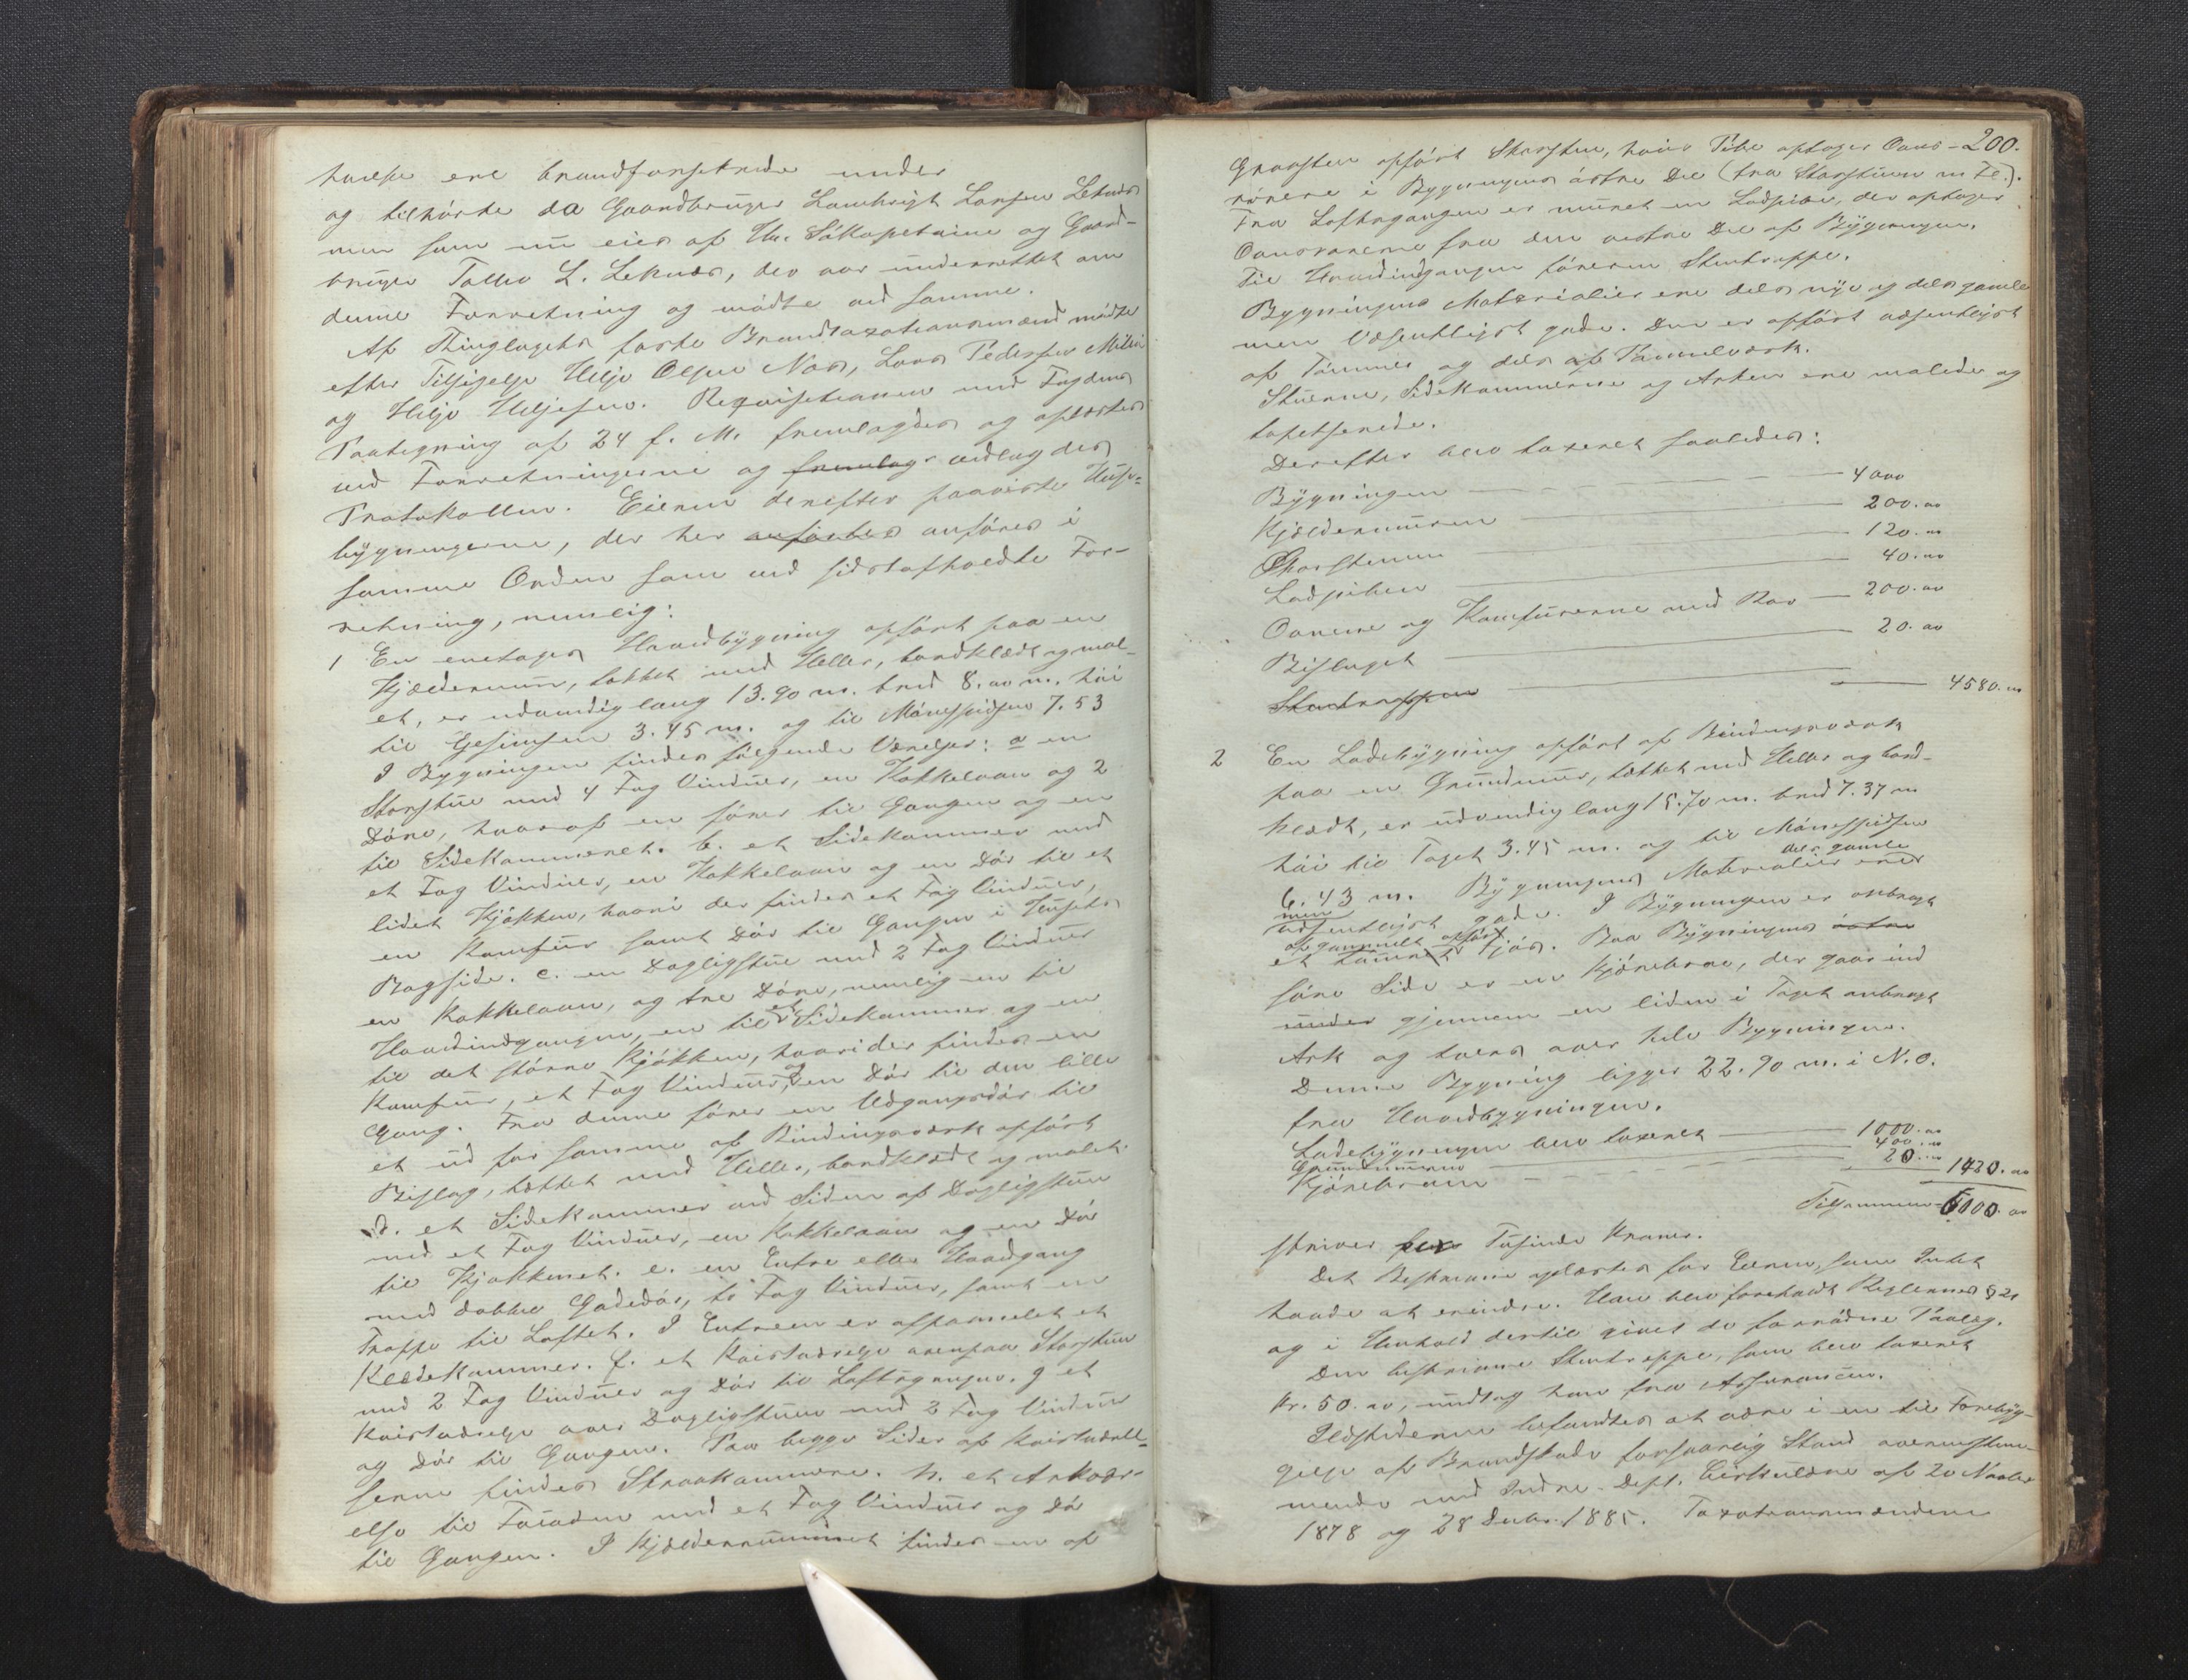 hvilke ere brandforsikrede under
og tilhørte da Gaardbruger Lambrigt Larsen Leknes
men som nu eies af Hr. Søkapetaine og Gaard-
bruger Tollev L. Leknes, der var underrettet om
denne Forretning og mødte ved samme.
Af Thinglagets faste Brandtaxationsmænd mødte
efter Tilsigelse Helje Olsen Næs, Lars Pedersen
og Helje Heljesen. Reqvisitionen med Fogdens
Paategning af 24 f. M. fremlagdes og oplæstes
ved Forretningerne og fremlag vedlagdes
Protokollen. Eieren derefter paaviste Huse-
bygningerne, der her anførtes anføres i
samme Orden som ved sidstafholdte For-
retning, nemlig:
1 En enetages Hovedbygning opført paa en
Kjældermur, tækket med Heller, bordklædt og mal-
et, er udvendig lang 13.90 m. bred 8.00 m. høi
til Gesimsen 3.45 m. og til Mønespidsen 7.53
I Bygningen findes følgende Værelser: a en
Storstue med 4 Fag Vinduer, en Kakkelovn og 2
Døre, hvoraf en fører til Gangen og en
til Sidekammeret. b. et Sidekammer med
et Fag Vinduer, en Kakkelovn og en Dør til et
lidet Kjøkken, hvori der findes et Fag Vinduer,
en Komfur samt Dør til Gangen i Husets
Bagside. c. en Dagligstue med 2 Fag Vinduer
en Kakkelovn, og tre Døre, nemlig en til
Hovedindgangen, en til et Sidekammer og en
til det større Kjøkken, hvori der findes en
Komfur, et Fag Vinduer, og en Dør til den lille
Gang. Fra denne fører en Udgangsdør til
et ud for samme af Bindingsværk opført
Bislag, tækket med Heller, bordklædt og malet.
d. et Sidekammer ved Siden af Dagligstuen
med et Fag Vinduer, en Kakkelovn og en Dør
til Kjøkkenet. e. en Entre eller Hovedgang
med dobbel Gadedør, to Fag Vinduer, samt en
Trappe til Loftet. I Entreen er afpanelet et
Klædekammer. f. et Kvistværelse ovenpaa Storstuen
med 2 Fag Vinduer og Dør til Loftsgangen. g et
Kvistværelse over Dagligstuen med 2 Fag Vinduer
og Dør til Gangen. Paa begge Sider af Kvistværel-
serne findes Skraakammere. h. et Arkvær-
else til Facaden med et Fag Vinduer og Dør
til Gangen. I Kjælderrummet findes en af
200.
Graasten opført Skorsten, hvis Pibe optager Ovns-
rørene i Bygningens østre Del (fra Storstuen m Fl.).
Fra Loftsgangen er muret en Lodpibe, der optager
Ovnsrørene fra den vestre Del af Bygningen.
Til Hovedindgangen fører en Stentrappe.
Bygningens Materialier ere dels nye og dels gamle
men væsentligst gode. Den er opført væsentligst
af Tømmer og dels af Panelværk.
Stuerne, Sidekammerne og Arken ere malede og
tapetserede.
Derefter blev taxeret saaledes:
Bygningen — 4000
Kjældermuren — 200.00
Skorstenen — 120.00
Lodpiben — 40.00
Ovnene og Komfurerne med Rør — 200.00
Bislaget — 20.00
Stentrappen — 4580.00
2 En Ladebygning opført af Bindingsværk
paa en Grundmur, tækket med Heller og bord-
klædt, er udvendig lang 15.70 m. bred 7.37 m
høi til Taget 3.45 m. og til Mønespidsen
6.43 m. Bygningens Materialier ere dels gamle
men væsentligst gode. I Bygningen er anbragt
et af gammelt opført tømret Fjøs. Paa Bygningens østre
søre Side er en Kjørebroe, der gaar ind
under gjennem en liden i Taget anbragt
Ark og tvers over hele Bygningen.
Denne Bygning ligger 22.90 m. i N.O.
fra Hovedbygningen.
Ladebygningen blev taxeret — 1000.00
Grundmuren — 400.00
Kjørebroen — 20.00 1420.00
Tilsammen 6000.00
skriver sex Tusinde Kroner.
Det Beskrevne oplæstes for Eieren, som Intet
havde at erindre. Han blev foreholdt Reglernes § 21
og i Henhold dertil givet de fornødne Paalæg.
Den beskrevne Stentrappe, som blev taxeret
Kr. 50.00, undtog han fra Assurancen.
Ildstederne befandtes at være i en til Forebyg-
gelse af Brandskade forsvarlig Stand overensstem-
mende med Indre-Dept. Cirkulære af 20 Novbr
1878 og 28 Decbr. 1885. Taxationsmændene